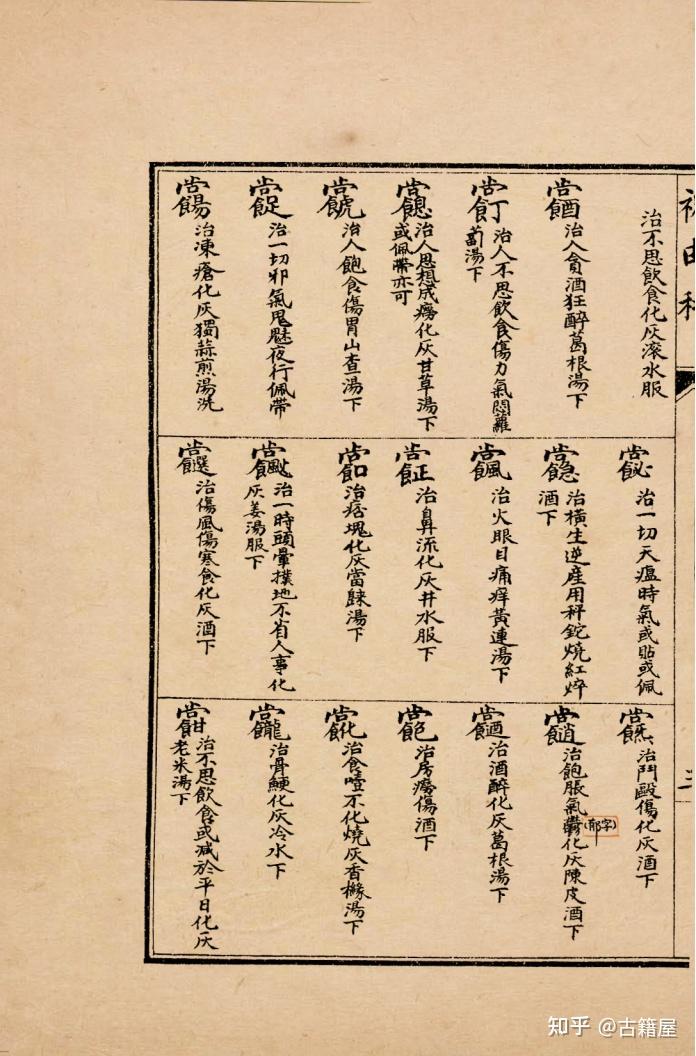 由
治不思飲食化灰滚水服
治人貪酒狂醉葛根湯下
治人不思飲食傷力氣悶蘿
蔔湯下
治人思想成癆化灰甘草湯下
或佩帶亦可
治人飽食傷胃山查湯下
治一切邪氣鬼魅夜行佩帶
治凍瘡化灰獨蒜煎湯洗
治一切天瘟時氣或貼或佩
治橫生逆產用秤錠燒紅焠
酒下
治火眼目痛痒黃連湯下
治鼻流化灰井水服下
治痞塊化灰當歸湯下
治一時頭暈撲地不省人事化
灰姜湯服下
治傷風傷寒食化灰酒下
三
治鬥毆傷化灰酒下
治飽脹氣鬱化灰陳皮酒下
(郁字)
治酒醉化灰葛根湯下
治房癆傷酒下
治食噎不化燒灰香櫞湯下
治骨鯁化灰冷水下
治不思飲食或減於平日化灰
老米湯下
知乎 @古籍屋